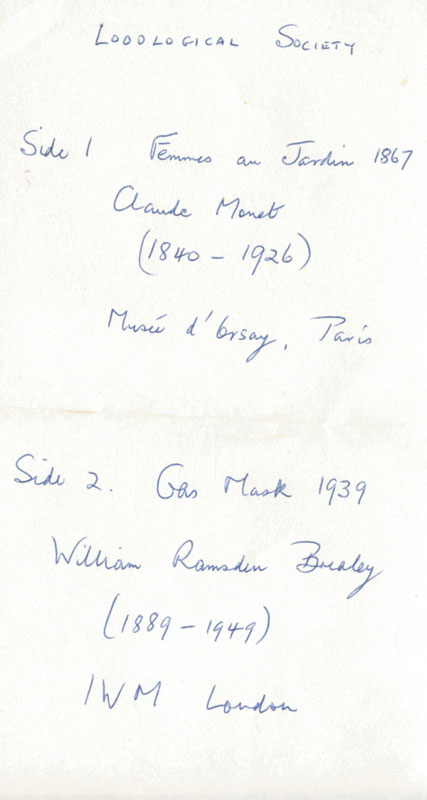 LOOOLOGICAL SOCIETY
Side 1 Femmes au Jardin 1867
Claude Monet
(1840 - 1926)
Musée d'Orsay, Paris
Side 2. Gas Mask 1939
William Ramsden Brealey
(1889 - 1949)
IWM London